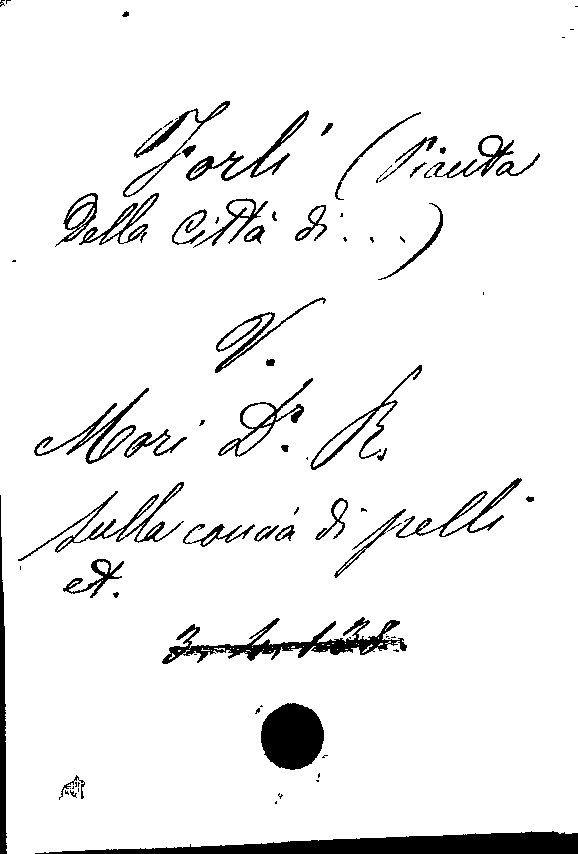 Forlì (Pianta
della Città di...)
V.
Mori Dr. R.
Sulla concia di pelli
et.